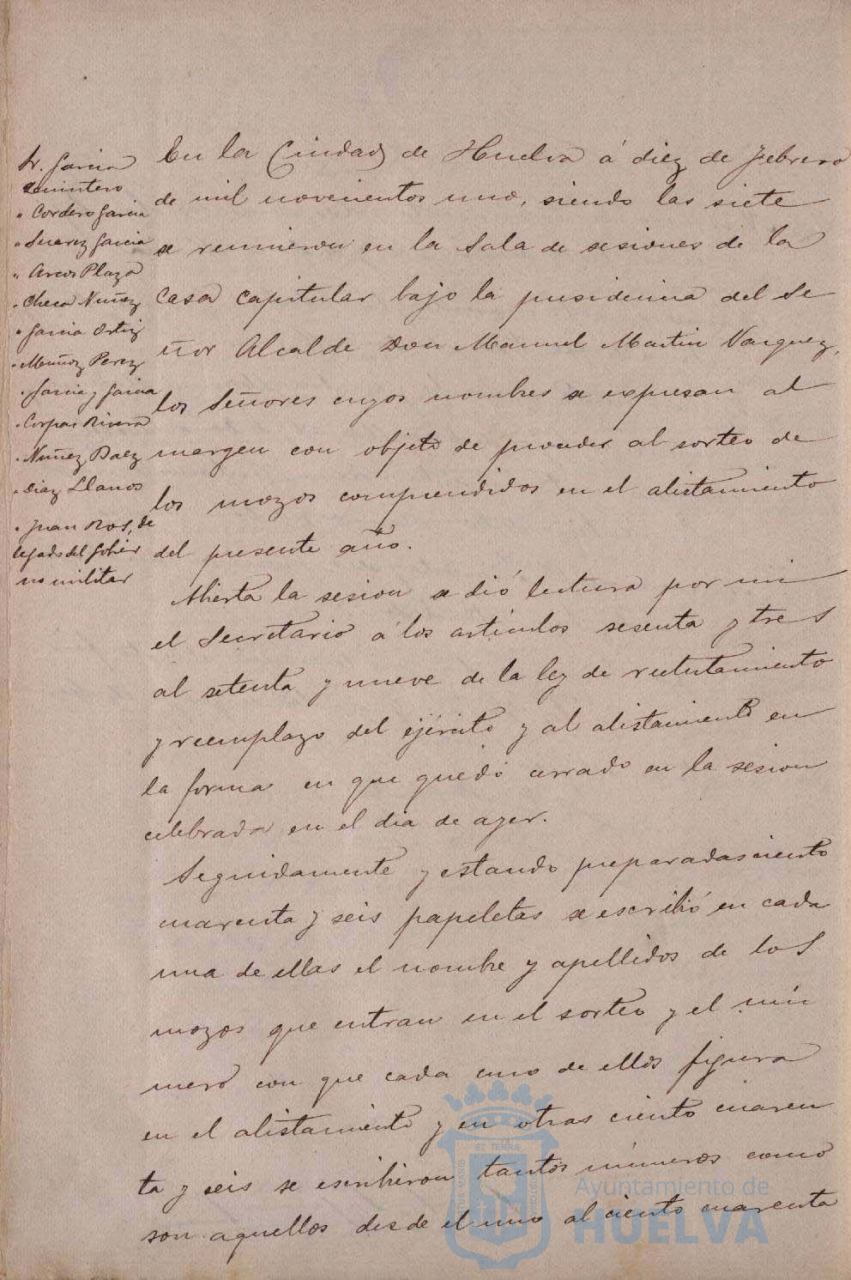 Sr. Garcia
Quintero
" Cordero Garcia
" Suarez Garcia
" Arcos Plaza
" Checa Nuñez
" Garcia Ortiz
" Muñoz Perez
" Garcia y Garcia
" Corpas Rivera
" Nuñez Baez
" Diaz Llanos
" Juan Ros, de
legado del Gobier
no militar
En la Ciudad de Huelva á diez de Febrero
de mil novecientos uno, siendo las siete
se reunieron en la Sala de sesiones de la
Casa capitular bajo la presidencia del Se
ñor Alcalde Don Manuel Martin Vazquez,
los Señores cuyos nombres se expresan al
margen con objeto de proceder al sorteo de
los mozos comprendidos en el alistamiento
del presente año.
Abierta la sesion se dió lectura por mi
el Secretario á los artículos sesenta y tres
al setenta y nueve de la ley de reclutamiento
y reemplazo del ejército y al alistamiento en
la forma en que quedó cerrado en la sesion
celebrada en el dia de ayer.
Seguidamente y estando preparadas ciento
cuarenta y seis papeletas se escribió en cada
una de ellas el nombre y apellidos de los
mozos que entran en el sorteo y el nú
mero con que cada uno de ellos figura
en el alistamiento y en otras ciento cuaren
ta y seis se escribieron tantos números como
son aquellos desde el uno al ciento cuarenta
Ayuntamiento de
HUELVA